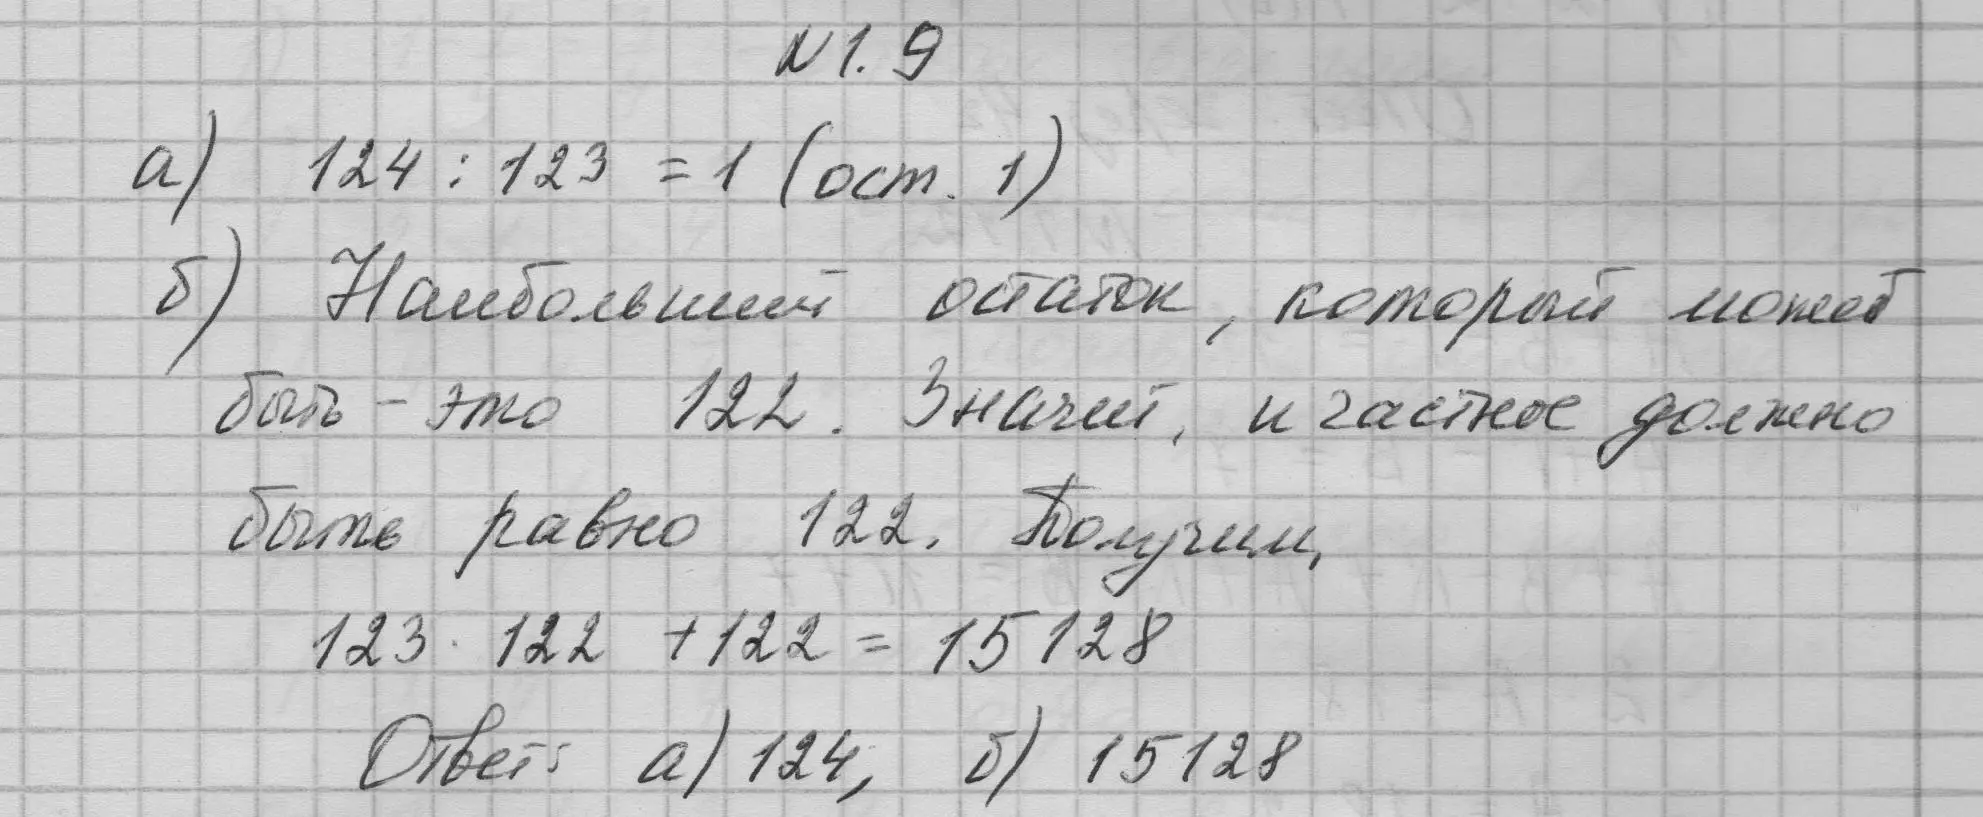 №1.9
а) 124 : 123 = 1 (ост. 1)
б) Наибольший остаток, который может
быть - это 122. Значит, и частное должно
быть равно 122. Получим,
123 · 122 + 122 = 15128
Ответ: а) 124, б) 15128